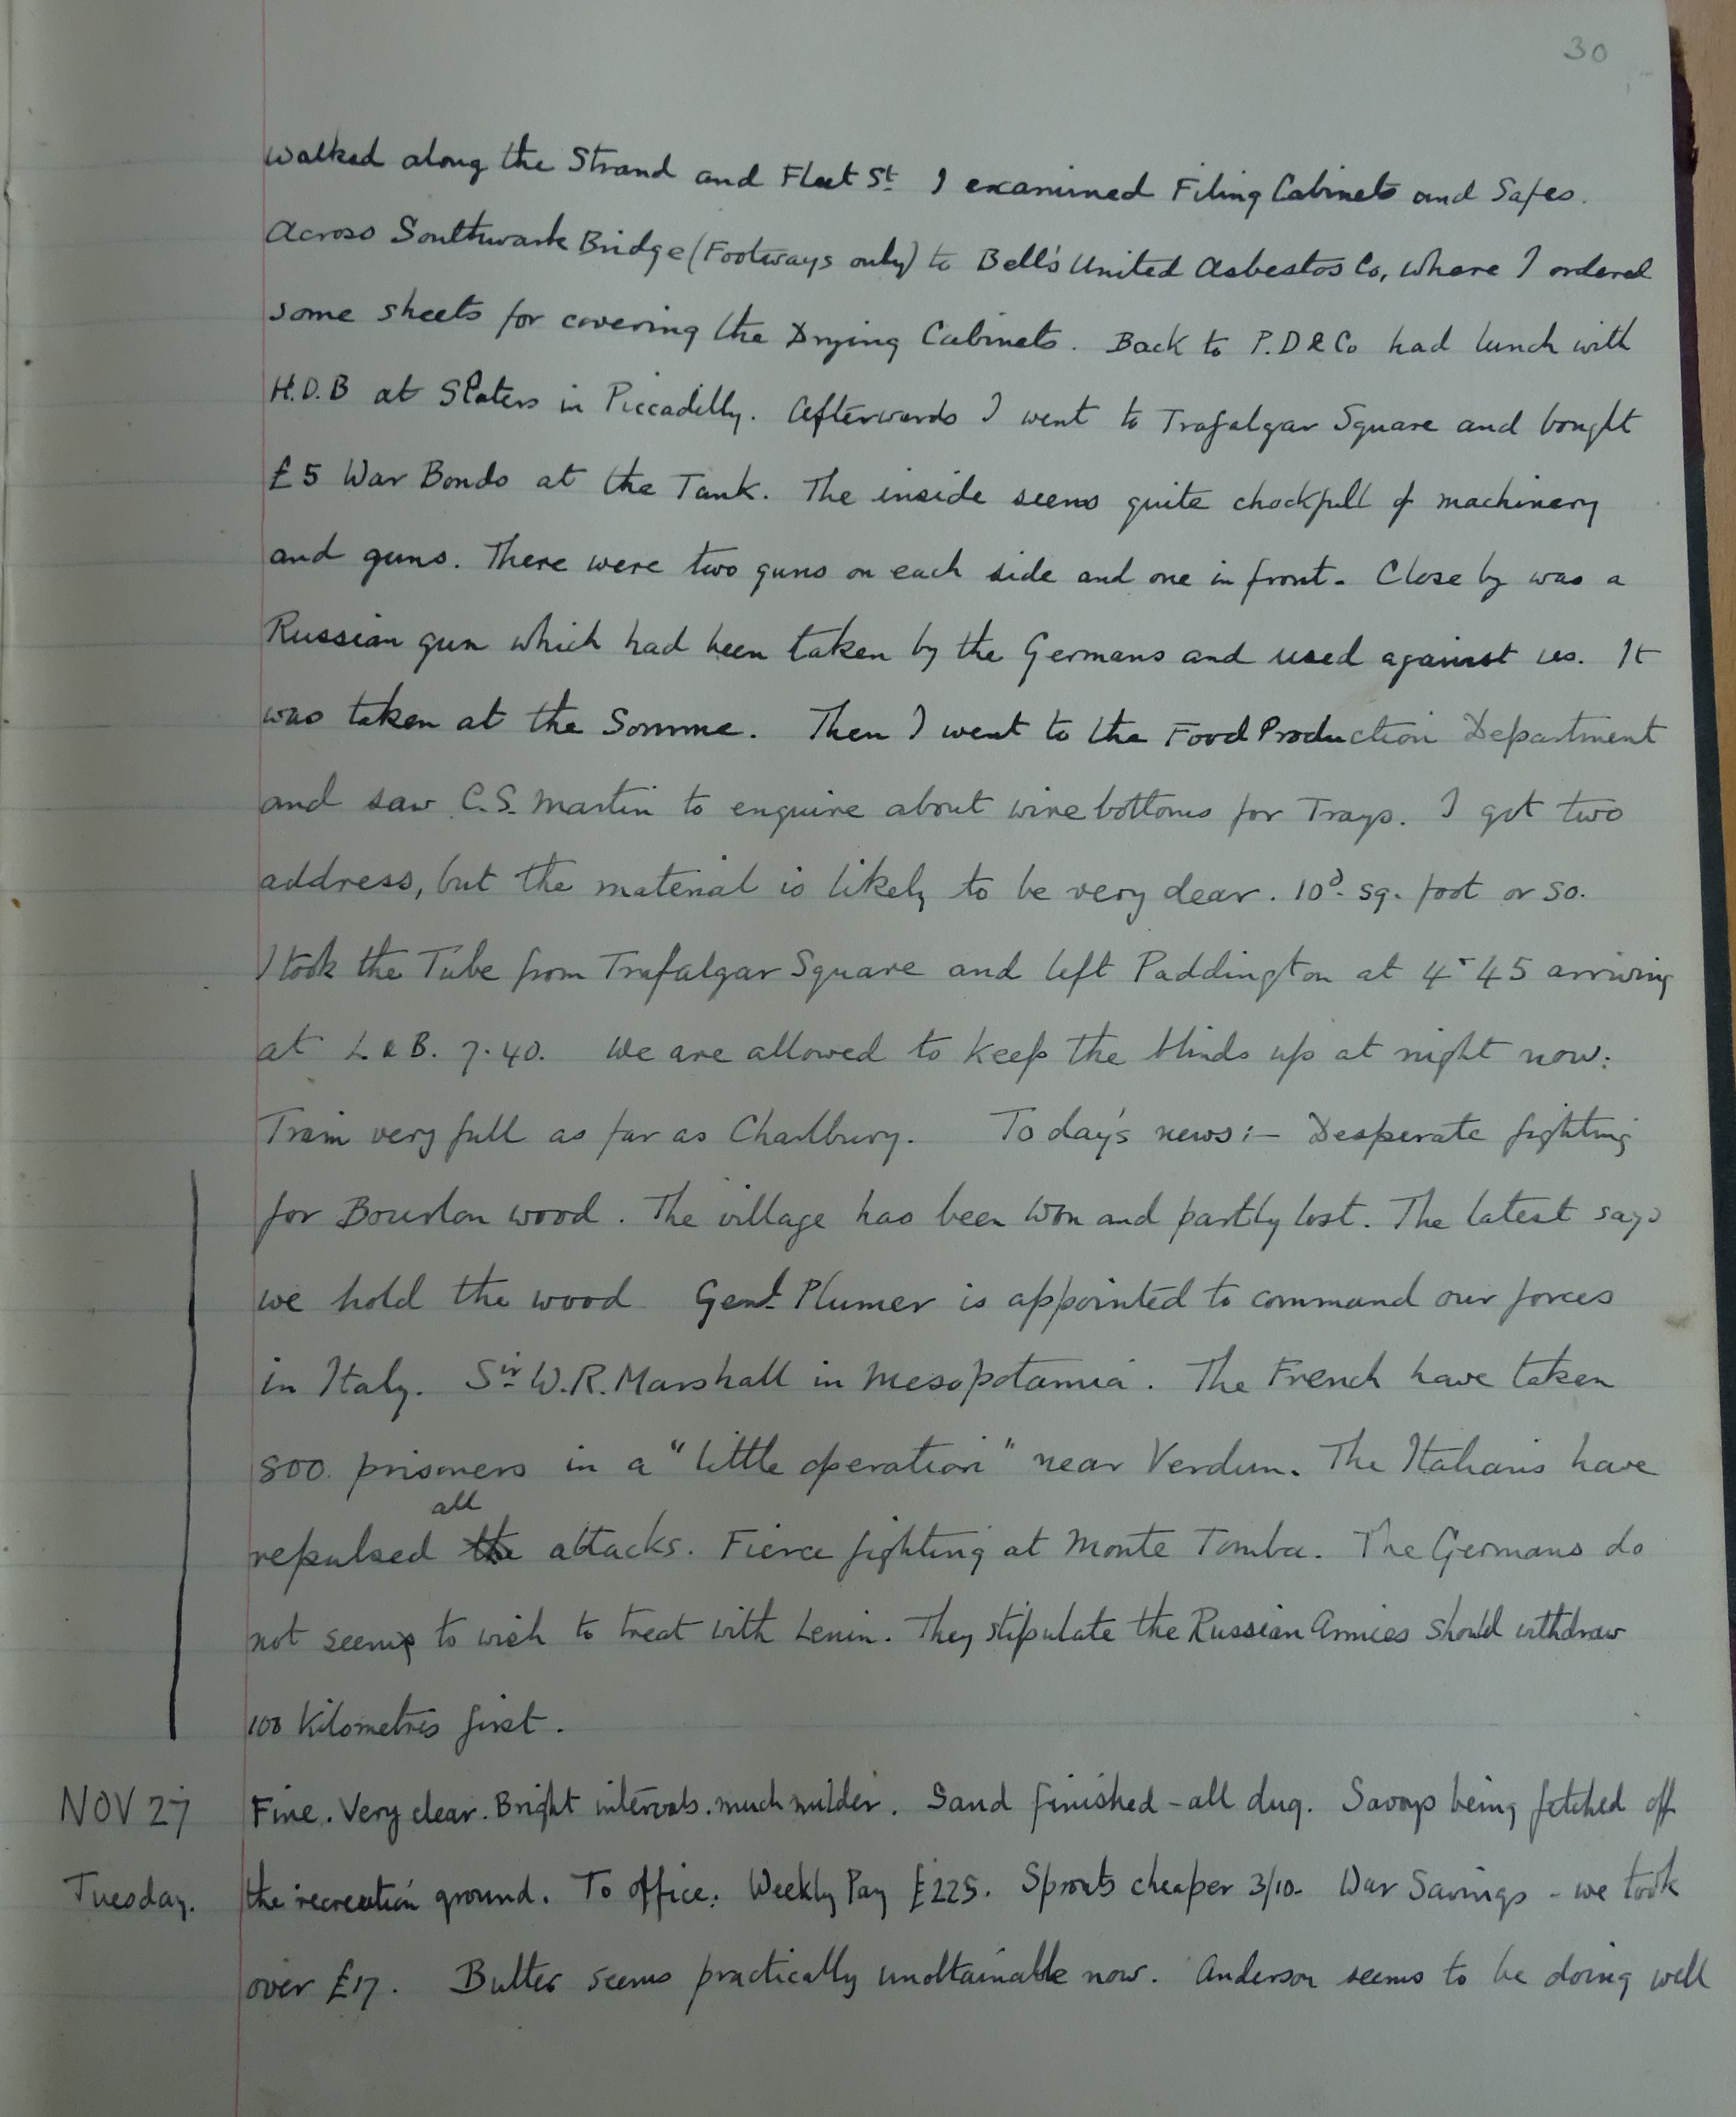 30
walked along the Strand and Fleet St. I examined Filing Cabinets and Safes.
Across Southwark Bridge (Footways only) to Bell's United Asbestos Co, where I ordered
some sheets for covering the Drying Cabinets. Back to P.D & Co had lunch with
H.D.B at Slaters in Piccadilly. Afterwards I went to Trafalgar Square and bought
£5 War Bonds at the Tank. The inside seems quite chockfull of machinery
and guns. There were two guns on each side and one in front. Close by was a
Russian gun which had been taken by the Germans and used against us. It
was taken at the Somme. Then I went to the Food Production Department
and saw C.S. Martin to enquire about wire bottoms for Trays. I got two
address, but the material is likely to be very dear. 10d. sq. foot or so.
I took the Tube from Trafalgar Square and left Paddington at 4.45 arriving
at L & B. 7.40. We are allowed to keep the blinds up at night now.
Train very full as far as Charlbury. Today's news:- Desperate fighting
for Bourlon wood. The village has been won and partly lost. The latest says
we hold the wood Genl. Plumer is appointed to command our forces
in Italy. Sir W.R. Marshall in Mesopotamia. The French have taken
800 prisoners in a "little operation" near Verdun. The Italians have
all
repulsed the attacks. Fierce fighting at Monte Tomba. The Germans do
not seem to wish to treat with Lenin. They stipulate the Russian Armies should withdraw
100 Kilometres first.
NOV 27 Fine. Very clear. Bright intervals. much milder. Sand finished - all dug. Savoys being fetched off
Tuesday. the recreation ground. To office. Weekly Pay £225. Sprouts cheaper 3/10. War Savings - we took
over £17. Butter seems practically unobtainable now. Anderson seems to be doing well